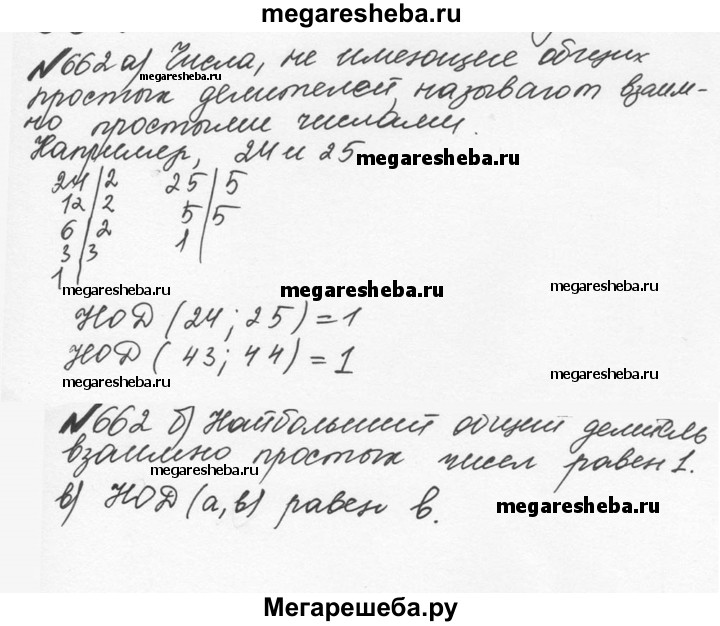 megaresheba.ru
№662 а) Числа, не имеющие общих
megaresheba.ru
простых делителей, называют взаим-
но простыми числами.
Например, 24 и 25 megaresheba.ru
24 | 2 25 | 5
12 | 2 5 | 5
6 | 2 1 |
3 | 3
1 |
megaresheba.ru megaresheba.ru megaresheba.ru
НОД (24; 25) = 1
НОД ( 43; 44) = 1
megaresheba.ru megaresheba.ru
№662 б) Наибольший общий делитель
взаимно простых чисел равен 1.
megaresheba.ru
в) НОД (а, в) равен в. megaresheba.ru
Мегарешеба.ру